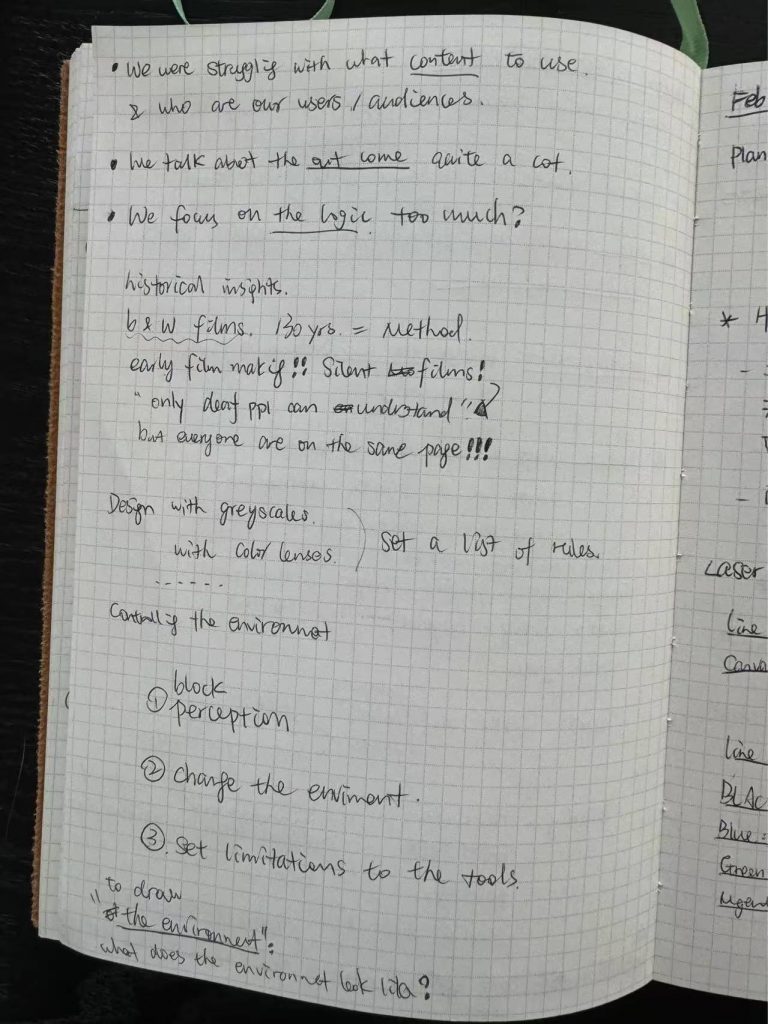 • We were strugglig with what content to use.
& who are our users / audiences.
• We talk about the out come quite a lot.
• We focus on the logic too much?
historical insights.
b & w films. 130 yrs. = Method.
early film makig!! Silent films!
"only deaf ppl can understand"
but everyone are on the same page!!!
Design with greyscales.
with color lenses.
set a list of rules.
......
Controllig the environnet
block
① perception
② change the enviment.
③. set limitations to the tools.
to draw
"the environment":
what does the environnet look like?
Feb
Plan
* H
-
-
Laser
Line
Canva
line
BLAC
Blue:
Green